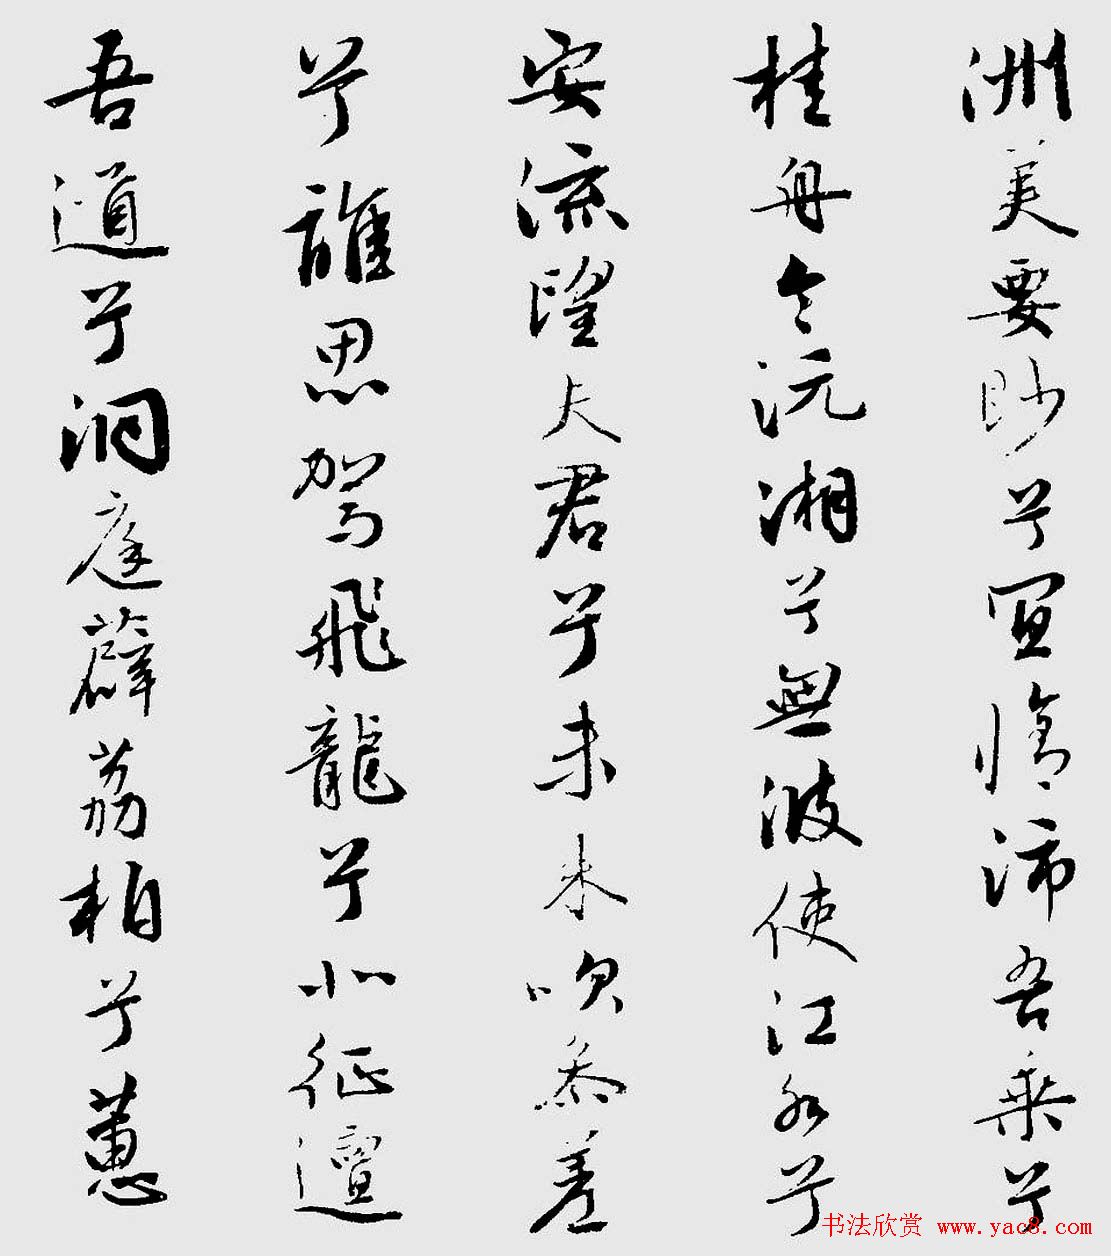 洲美要眇兮宜脩沛吾乘兮
桂舟令沅湘兮無波使江水兮
安流望夫君兮未来吹參差
兮誰思駕飛龍兮北征邅
吾道兮洞庭薜荔柏兮蕙
书法欣赏 www.yac8.com